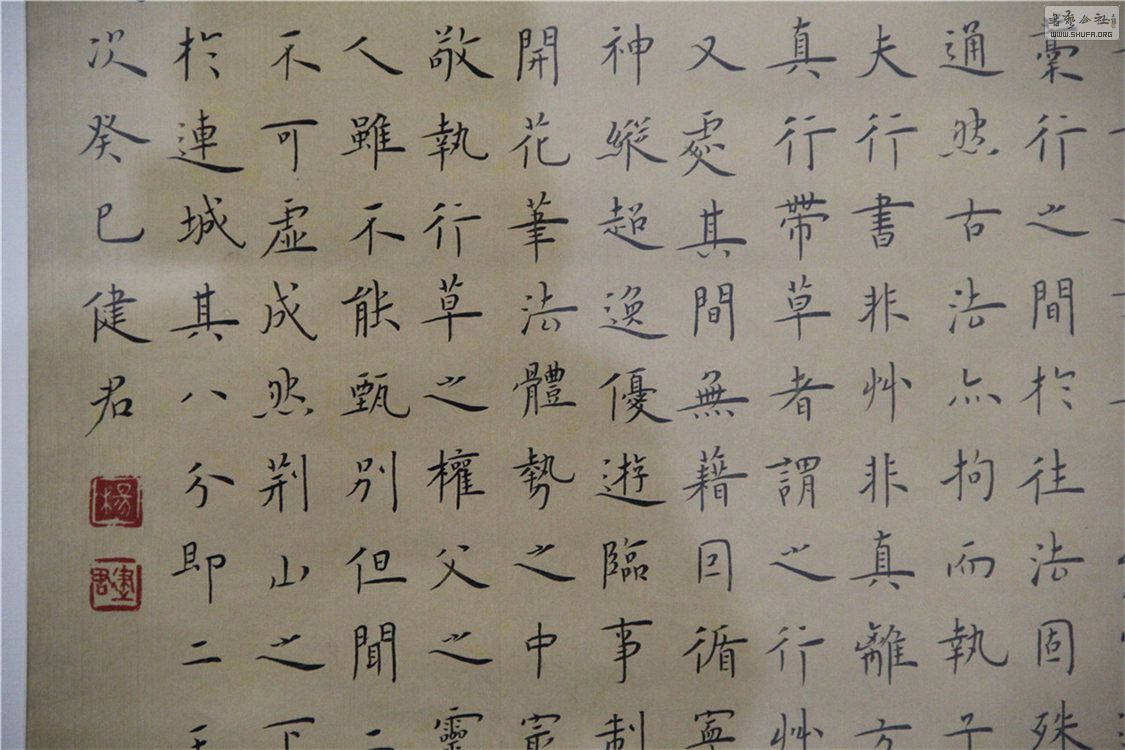 稾行之間於往法固殊
通然古法亦拘而執子
夫行書非艸非真離方
真行帶草者謂之行艸
又處其間無藉囙循寧
神縱超逸優遊臨事制
開花筆法體勢之中最
敬執行草之權父之靈
人雖不能甄別但聞二
不可虛成然荆山之下
於連城其八分即二王
次癸巳健君
楊
健君
書藝公社
WWW.SHUFA.ORG